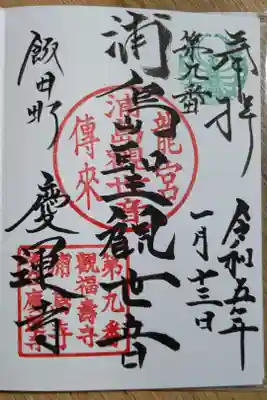 奉拝
第九番
令和五年
一月十三日
浦島聖觀世音
龍宮
浦島觀世音
傳來
飯田町
慶運寺
第九番
觀福壽寺
浦島寺